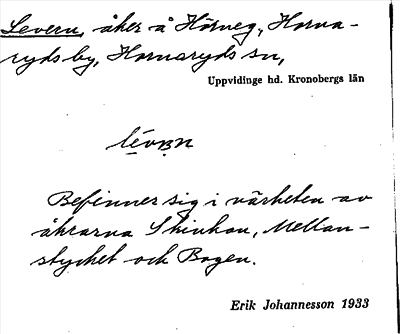 Levern, åker å Hörneg, Horna-
ryds by, Hornaryds sn,
Uppvidinge hd. Kronobergs län
Befinner sig i närheten av
åkrarna Skinkan, Mellan-
stycket och Bogen.
Erik Johannesson 1933